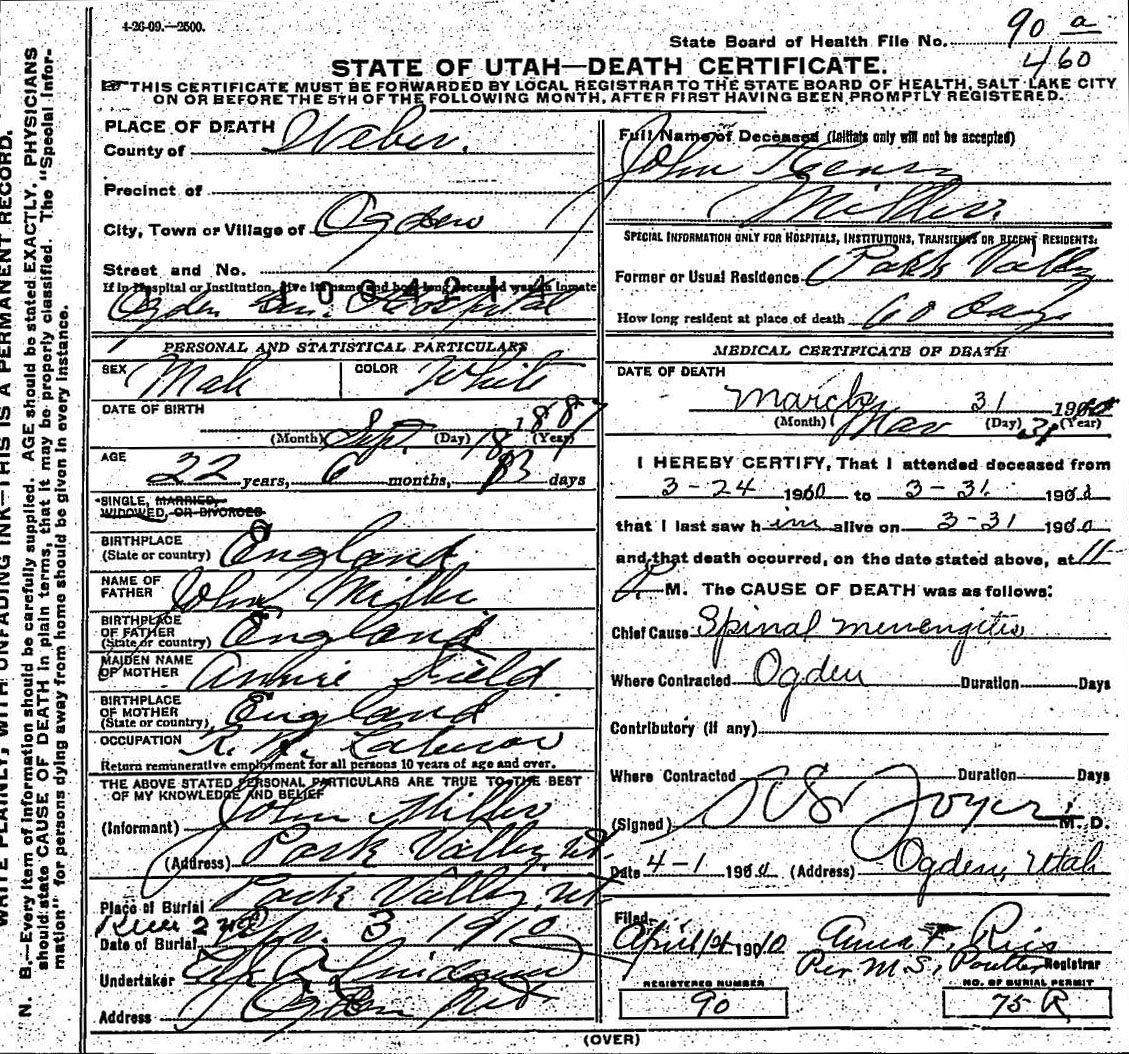 4-26-09.—2500.
90 a
State Board of Health File No.
460
STATE OF UTAH—DEATH CERTIFICATE.
THIS CERTIFICATE MUST BE FORWARDED BY LOCAL REGISTRAR TO THE STATE BOARD OF HEALTH, SALT LAKE CITY
ON OR BEFORE THE 5TH OF THE FOLLOWING MONTH, AFTER FIRST HAVING BEEN PROMPTLY REGISTERED.
WRITE PLAINLY, WITH UNFADING INK—THIS IS A PERMANENT RECORD.
N. B.—Every item of information should be carefully supplied. AGE should be stated EXACTLY. PHYSICIANS
should state CAUSE OF DEATH in plain terms, that it may be properly classified. The "Special Infor-
mation" for persons dying away from home should be given in every instance.
PLACE OF DEATH
County of Weber.
Precinct of
City, Town or Village of Ogden
Street and No.
If in Hospital or Institution, give its name and how long deceased was an inmate
Ogden Gen. Hospital
PERSONAL AND STATISTICAL PARTICULARS
SEX Male COLOR White
DATE OF BIRTH 1887
(Month) Sept. (Day) 18 (Year)
AGE
22 years, 6 months, 13 days
SINGLE, MARRIED,
WIDOWED, OR DIVORCED
BIRTHPLACE
(State or country) England
NAME OF
FATHER John Miller
BIRTHPLACE
OF FATHER
(State or country) England
MAIDEN NAME
OF MOTHER Annie Field
BIRTHPLACE
OF MOTHER
(State or country) England
OCCUPATION R. R. Laborer
Return remunerative employment for all persons 10 years of age and over.
THE ABOVE STATED PERSONAL PARTICULARS ARE TRUE TO THE BEST
OF MY KNOWLEDGE AND BELIEF
(Informant) John Miller
(Address) Park Valley, Ut.
Place of Burial Park Valley, Ut
Date of Burial Apr. 3 1910
Undertaker
Address Ogden
Full Name of Deceased (Initials only will not be accepted)
John Henry
Miller
SPECIAL INFORMATION ONLY FOR HOSPITALS, INSTITUTIONS, TRANSIENTS OR RECENT RESIDENTS:
Former or Usual Residence Park Valley
How long resident at place of death 60 days
MEDICAL CERTIFICATE OF DEATH
DATE OF DEATH
March 31 1910
(Month) Mar (Day) 31 (Year)
I HEREBY CERTIFY, That I attended deceased from
3-24 1910 to 3-31 1910
that I last saw him alive on 3-31 1910
and that death occurred, on the date stated above, at 11
M. The CAUSE OF DEATH was as follows:
Chief Cause Spinal menengites
Where Contracted Ogden Duration Days
Contributory (if any)
Where Contracted Duration Days
(Signed) M. D.
Date 4-1 1910 (Address) Ogden, Utah
Filed
April 1st 1910 Anna F. Ries
Per M. S. Poulter Registrar
REGISTERED NUMBER
90
NO. OF BURIAL PERMIT
75 R
(OVER)